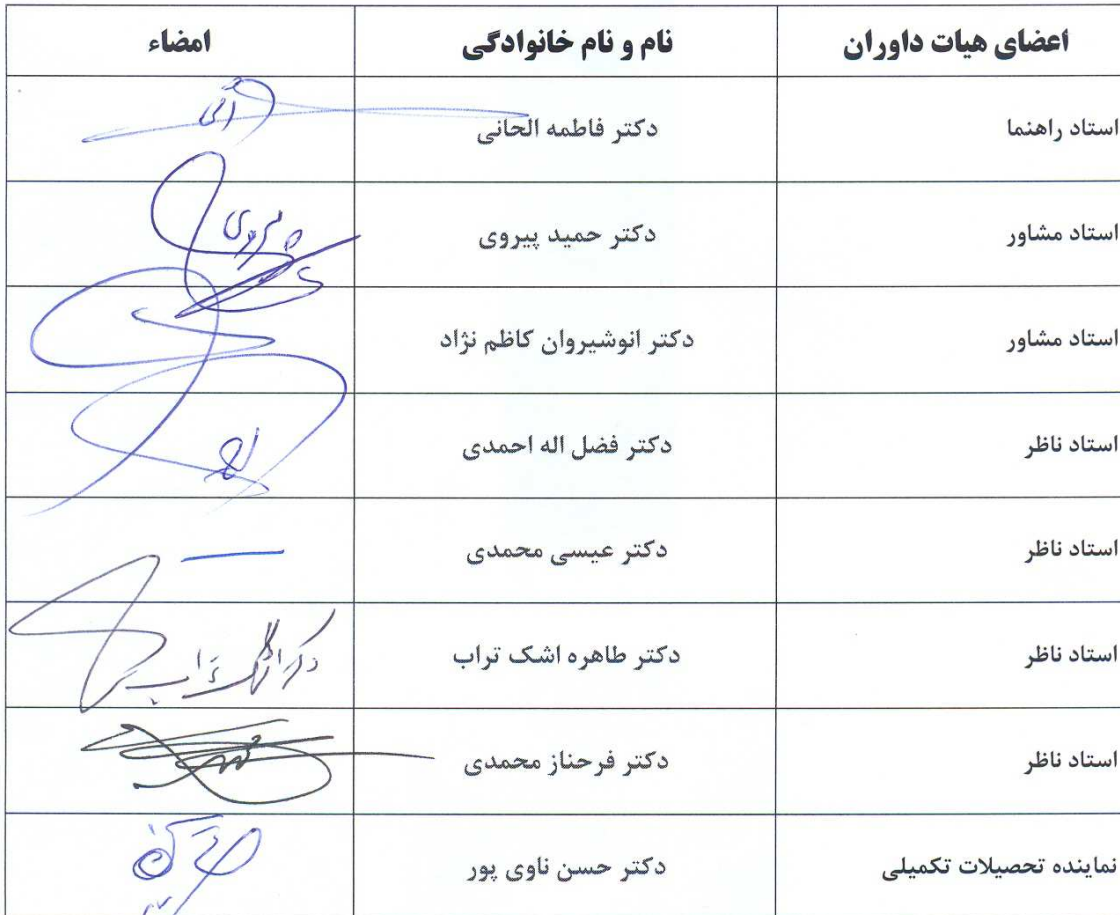 اعضای هیات داوران نام و نام خانوادگی امضاء
استاد راهنما دکتر فاطمه الحانی
استاد مشاور دکتر حمید پیروی پیروی
استاد مشاور دکتر انوشیروان کاظم نژاد
استاد ناظر دکتر فضل اله احمدی
استاد ناظر دکتر عیسی محمدی
استاد ناظر دکتر طاهره اشک تراب دکتر اشک تراب
استاد ناظر دکتر فرحناز محمدی
نماینده تحصیلات تکمیلی دکتر حسن ناوی پور